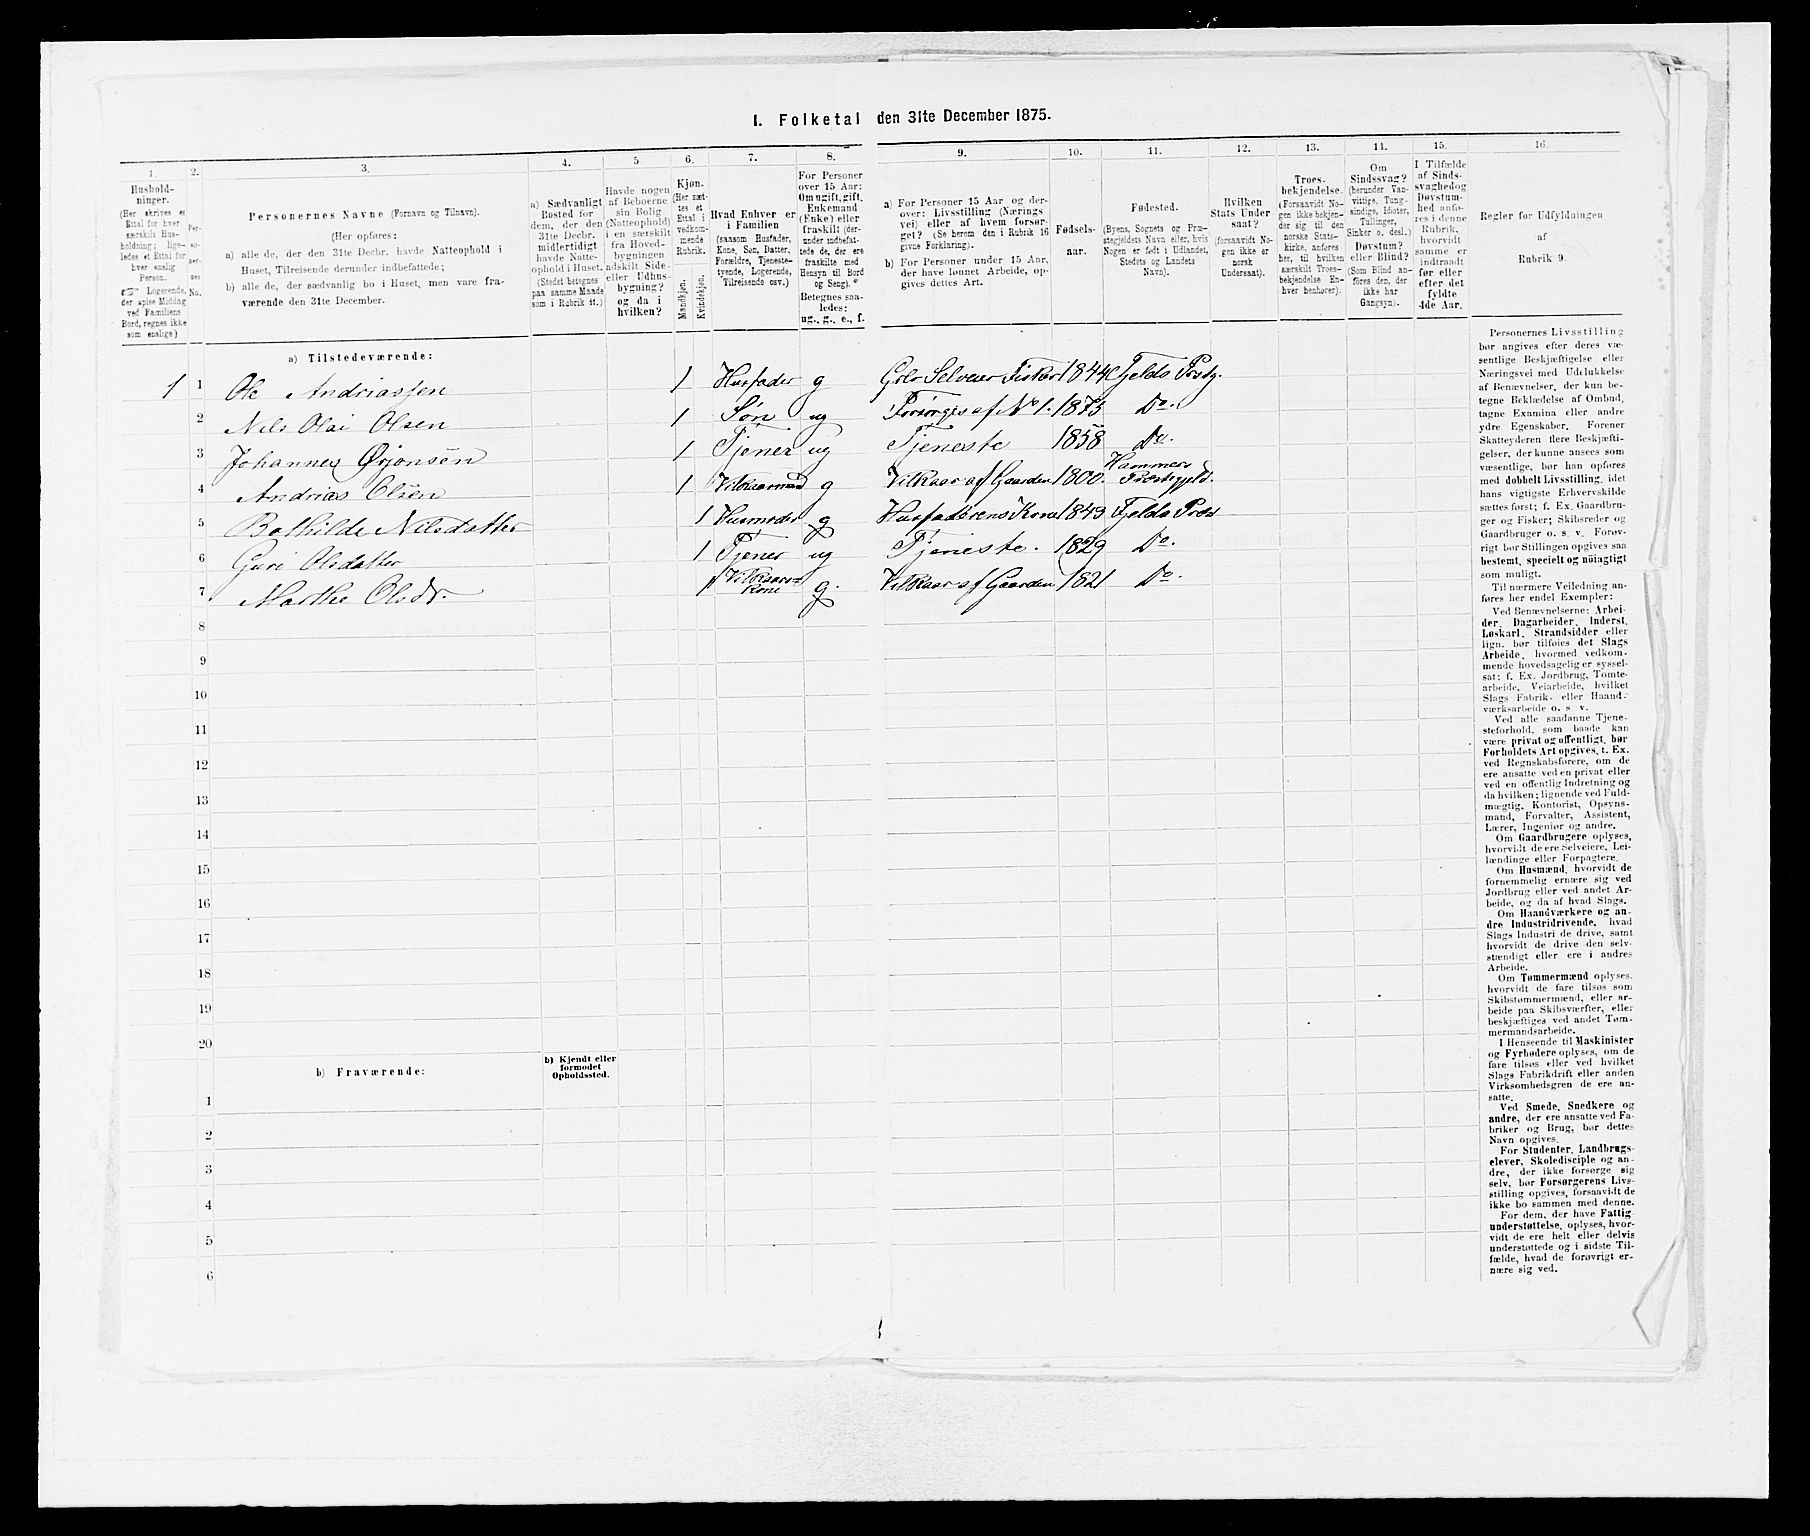 I. Folketal den 31te December 1875.
1. 2. 3. 4. 5. 6. 7. 8. 9. 10. 11. 12. 13. 14. 15. 16.
Hushold-
ninger.
(Her skrives et
Ettal for hver
særskilt Hus-
holdning; lige-
ledes et Ettal for
hver enslig
Person.
Logerende,
der spise Middag
ved Familiens
Bord, regnes ikke
som enslige.)
Per-
so-
ner-
nes
No.
Personernes Navne (Fornavn og Tilnavn).
(Her opføres:
a) alle de, der den 31te Decbr. havde Natteophold i
Huset, Tilreisende derunder indbefattede;
b) alle de, der sædvanlig bo i Huset, men vare fra-
værende den 31te December.
a) Sædvanligt
Bosted for
dem, der den
31te Decbr.
midlertidigt
havde Natte-
ophold i Huset.
(Stedet betegnes
paa samme Maade
som i Rubrik 11.)
Havde nogen
af Beboerne
sin Bolig
(Natteophold)
i en særskilt
fra Hoved-
bygningen
adskilt Side-
eller Udhus-
bygning?
og da i
hvilken?
Kjøn.
(Her sæt-
tes et
Ettal i
vedkom-
mende
Rubrik.
Mandkjøn.
Kvindekjøn.
Hvad Enhver er
i Familien
(saasom Husfader,
Kone, Søn, Datter,
Forældre, Tjeneste-
tyende, Logerende,
Tilreisende osv.)
For Personer
over 15 Aar:
Om ugift, gift,
Enkemand
(Enke) eller
fraskilt (der-
under indbefat-
tede de, der ere
fraskilte med
Hensyn til Bord
og Seng). *
Betegnes saa-
ledes:
ug., g., e., f.
a) For Personer 15 Aar og der-
over: Livsstilling (Nærings
vei) eller af hvem forsør-
get? (Se herom den i Rubrik 16
givne Forklaring).
b) For Personer under 15 Aar,
der have lønnet Arbeide, op-
gives dettes Art.
Fødsels-
aar.
Fødested.
(Byens, Sognets og Præ-
stegjeldets Navn eller, hvis
Nogen er født i Udlandet,
Stedets og Landets
Navn).
Hvilken
Stats Under-
saat?
(forsaavidt No-
gen ikke er
norsk
Undersaat).
Troes-
bekjendelse.
(Forsaavidt No-
gen ikke bekjen-
der sig til den
norske Stats-
kirke, anføres
her, til hvilken
særskilt Troes-
bekjendelse En-
hver henhører).
Om
Sindssvag?
(herunder Van-
vittige, Tung-
sindige, Idioter,
Tullinger,
Sinker o. desl.)
Døvstum?
eller Blind?
(Som Blind an-
føres den, der
ikke har
Gangsyn).
I Tilfælde
af Sinds-
svaghed og
Døvstum-
hed anfø-
res i denne
Rubrik,
hvorvidt
samme er
indtraadt
før eller
efter det
fyldte
4de Aar.
Regler for Udfyldningen
af
Rubrik 9.
a) Tilstedeværende:
1 1 Ole Andriassen 1 Husfader g Grbr Selveier Fisker 1844 Fjelds Prstg.
2 Nils Olai Olsen 1 Søn ug Forsørges af No 1. 1875 Do.
3 Johannes Ørjansen 1 Tjener ug Tjeneste 1858 Do.
4 Andrias Olsen 1 Vilkaarmand g Vilkaar af Gaarden 1800. Hammers Præstegjeld.
5 Bothilde Nilsdatter 1 Husmoder g Husfaderens Kone 1849 Fjelds Præs
6 Guri Olsdatter 1 Tjener ug Tjeneste. 1829 Do.
7 Marthe Olsdr. 1 Vilkaars=Kone g. Vilkaar af Gaarden 1821 Do.
8
9
10
11
12
13
14
15
16
17
18
19
20
b) Fraværende:
b) Kjendt eller
formodet
Opholdssted.
1
2
3
4
5
6
Personernes Livsstilling
bør angives efter deres væ-
sentlige Beskjæftigelse eller
Næringsvei med Udelukkelse
af Benævnelser, der kun be-
tegne Beklædelse af Ombud,
tagne Examina eller andre
ydre Egenskaber. Forener
Skatteyderen flere Beskjæfti-
gelser, der kunne ansees som
væsentlige, bør han opføres
med dobbelt Livsstilling, idet
hans vigtigste Erhvervskilde
sættes først; f. Ex. Gaardbru-
ger og Fisker; Skibsreder og
Gaardbruger o. s. v. Forøv-
rigt bør Stillingen opgives saa
bestemt, specielt og nöiagtigt
som muligt.
Til nærmere Veiledning an-
føres her endel Exempler:
Ved Benævnelserne: Arbei-
der, Dagarbeider, Inderst,
Løskarl, Strandsidder eller
lign. bør tilføies det Slags
Arbeide, hvormed vedkom-
mende hovedsagelig er syssel-
sat; f. Ex. Jordbrug, Tomte-
arbeide, Veiarbeide, hvilket
Slags Fabrik- eller Haand-
værksarbeide o. s. v.
Ved alle saadanne Tjene-
steforhold, som baade kan
være privat og offentligt, bør
Forholdets Art opgives, t. Ex.
ved Regnskabsførere, om de
ere ansatte ved en privat eller
ved en offentlig Indretning og
da hvilken; lignende ved Fuld-
mægtig, Kontorist, Opsyns-
mand, Forvalter, Assistent,
Lærer, Ingeniør og andre.
Om Gaardbrugere oplyses,
hvorvidt de ere Selveiere, Lei-
lændinge eller Forpagtere.
Om Husmænd, hvorvidt de
fornemmelig ernære sig ved
Jordbrug eller ved andet Ar-
beide, og da af hvad Slags.
Om Haandværkere og an-
dre Industridrivende, hvad
Slags Industri de drive, samt
hvorvidt de drive den selv-
stændigt eller ere i andres
Arbeide.
Om Tømmermænd oplyses,
hvorvidt de fare tilsøs som
Skibstømmermænd, eller ar-
beide paa Skibsværfter, eller
beskjæftiges ved andet Tøm-
mermandsarbeide.
I Henseende til Maskinister
og Fyrbødere oplyses, om de
fare tilsøs eller ved hvilket
Slags Fabrikdrift eller anden
Virksomhedsgren de ere an-
satte.
Ved Smede, Snedkere og
andre, der ere ansatte ved Fa-
briker og Brug, bør dettes
Navn opgives.
For Studenter, Landbrugs-
elever, Skoledisciple og an-
dre, der ikke forsørge sig
selv, bør Forsørgerens Livs-
stilling opgives, forsaavidt de
ikke bo sammen med denne.
For dem, der have Fattig-
understøttelse, oplyses, hvor-
vidt de ere helt eller delvis
understøttede og i sidste Til-
fælde, hvad de forøvrigt er-
nære sig ved.